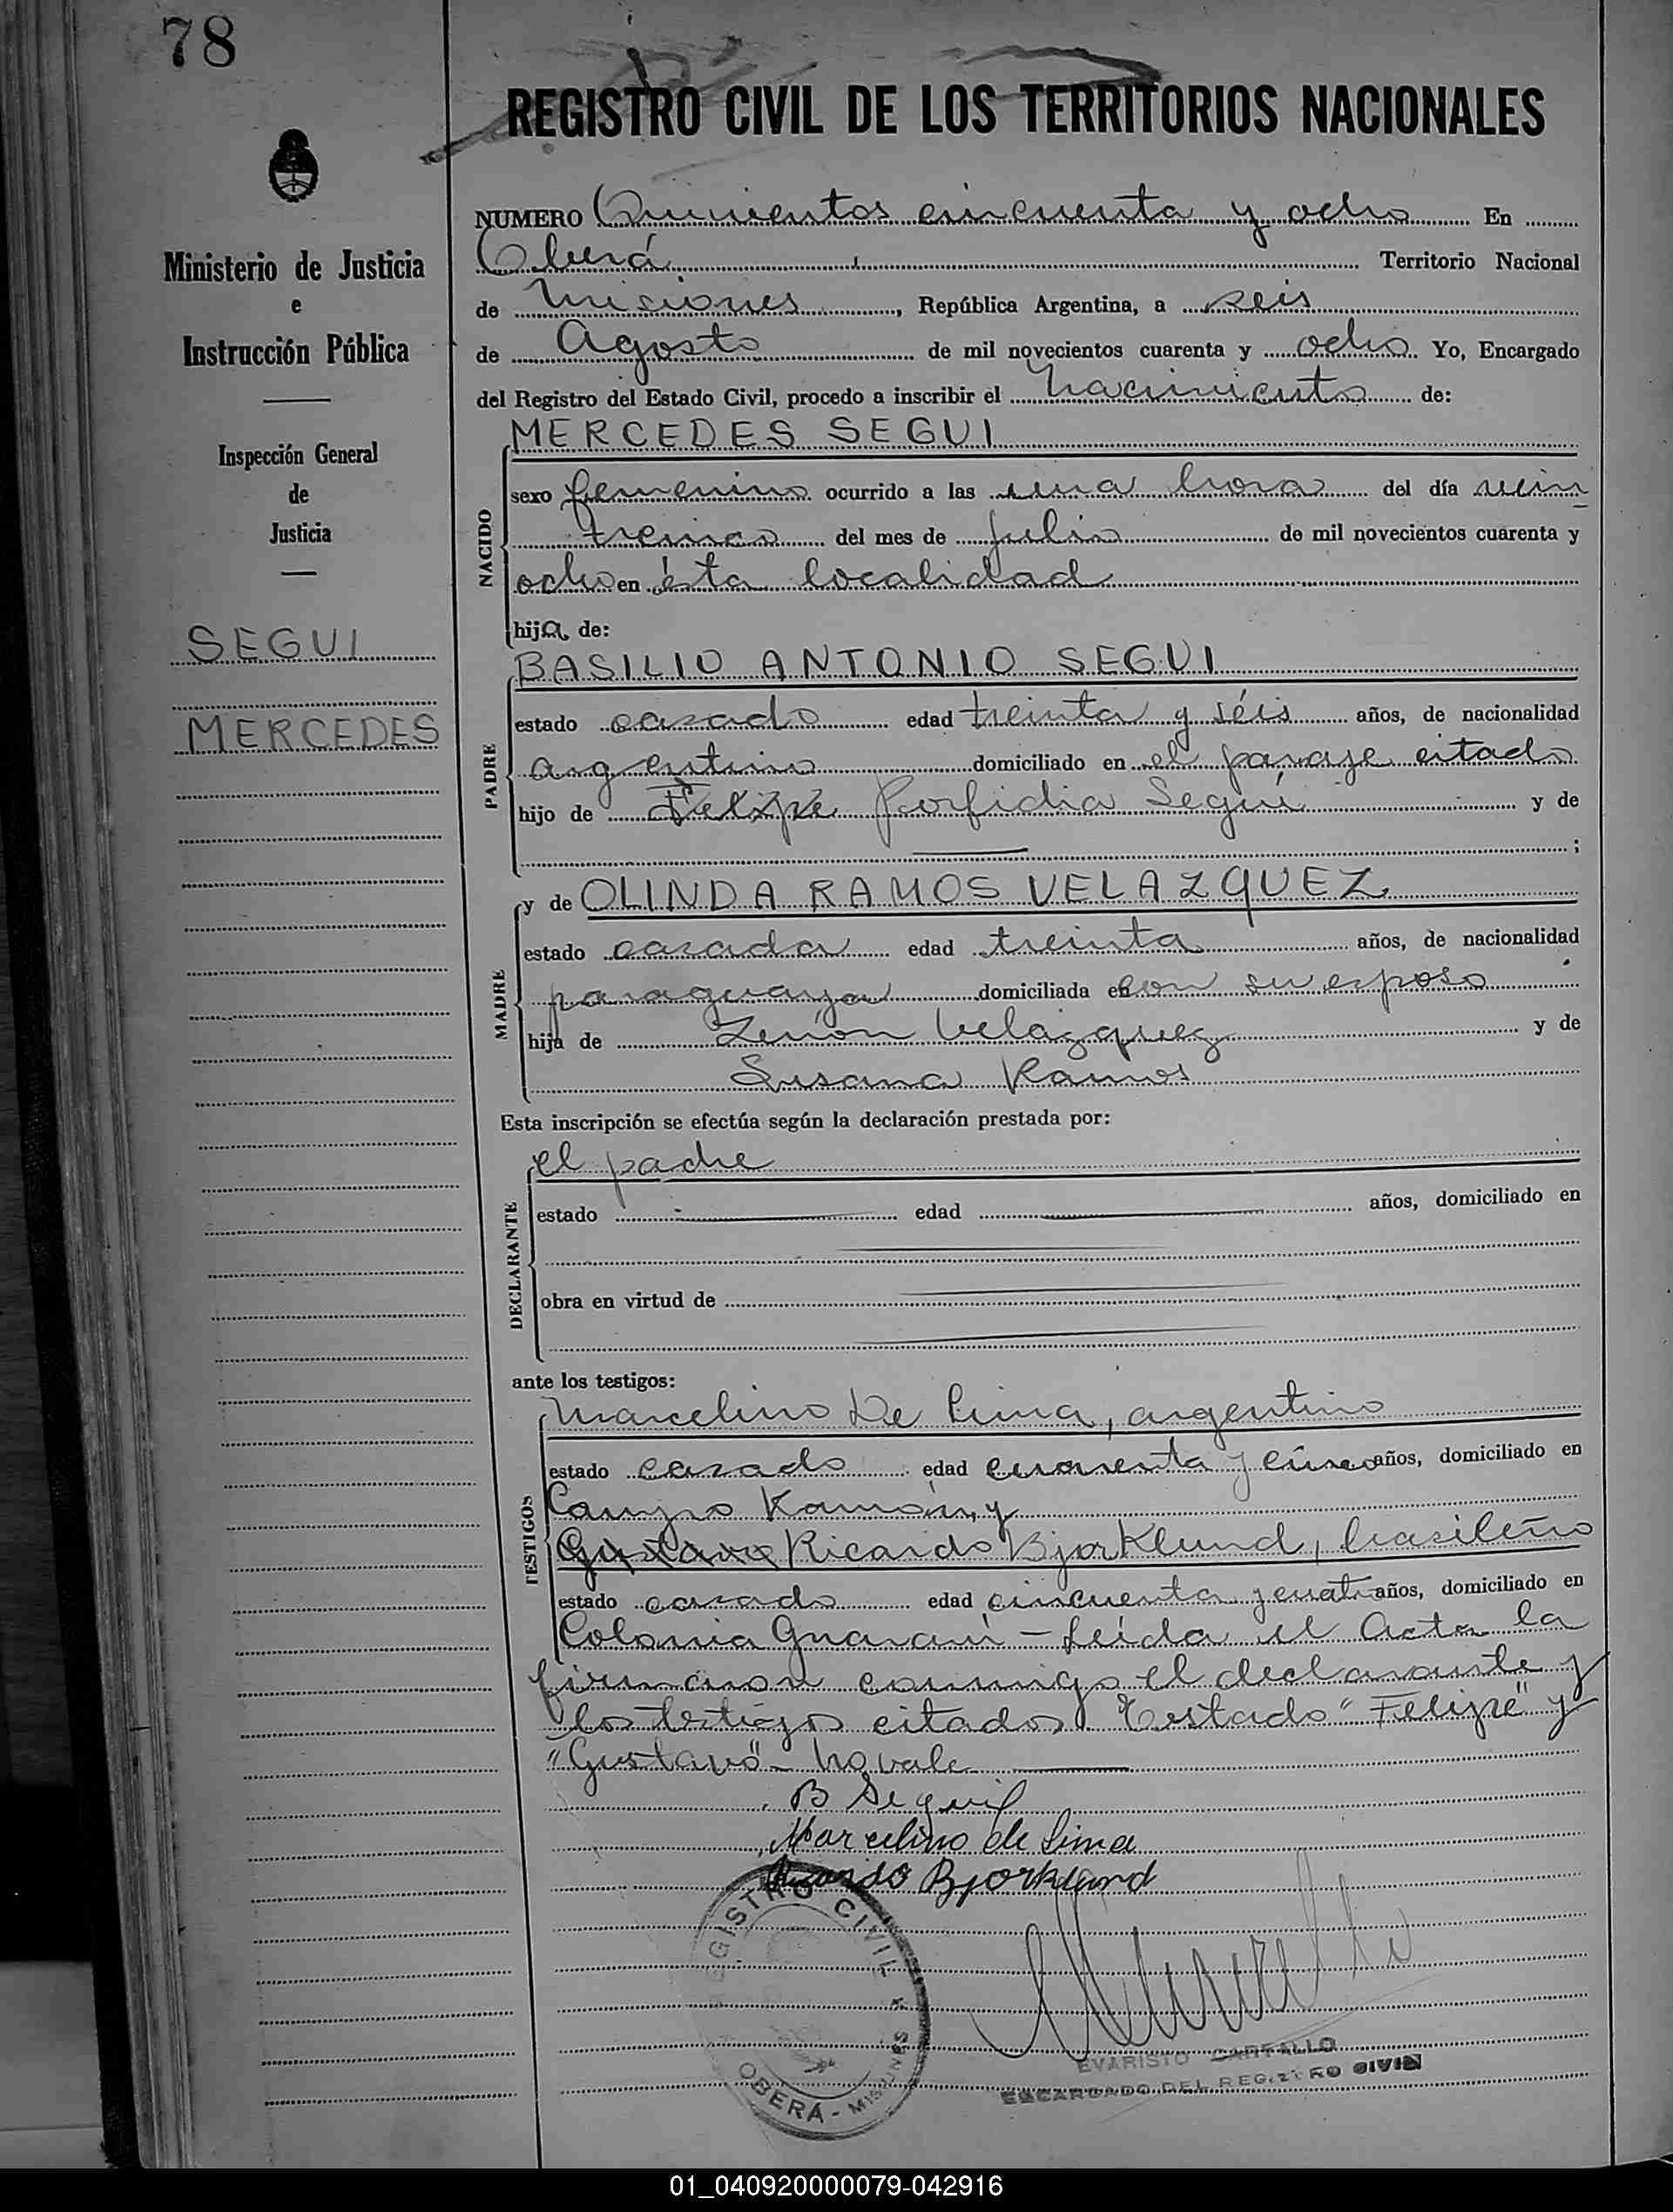 78
REGISTRO CIVIL DE LOS TERRITORIOS NACIONALES
Ministerio de Justicia
e
Instrucción Pública
Inspección General
de
Justicia
SEGUI
MERCEDES
NUMERO Quinientos cincuenta y ocho En
Oberá Territorio Nacional
de Misiones, República Argentina, a seis
de Agosto de mil novecientos cuarenta y ocho. Yo, Encargado
del Registro del Estado Civil, procedo a inscribir el nacimiento de:
MERCEDES SEGUI
NACIDO
sexo femenino ocurrido a las una hora del día vein
del mes de julio de mil novecientos cuarenta y
ocho en ésta localidad
hija de:
BASILIO ANTONIO SEGUI
PADRE
estado casado edad treinta y séis años, de nacionalidad
argentino domiciliado en el paraje citado
hijo de Felipe Porfidia Seguí y de
;
y de OLINDA RAMOS VELAZQUEZ
MADRE
estado casada edad treinta años, de nacionalidad
paraguaya domiciliada en con su esposo
hija de Zenón Velazquez y de
Susana Ramos
Esta inscripción se efectúa según la declaración prestada por:
el padre
DECLARANTE
estado edad años, domiciliado en
obra en virtud de
ante los testigos:
Marcelino De Lima, argentino
TESTIGOS
estado casado edad cuarenta y cinco años, domiciliado en
Campo Ramón, y
Gustavo Ricardo Bjorklund, brasileño
estado casado edad cincuenta y cuatro años, domiciliado en
Colonia Guaraní - Leída el Acta la
firmaron conmigo el declarante y
los testigos citados Testado "Felipe" y
"Gustavo" - No vale
B Segui
Marcelino de Lima
Ricardo Bjorklund
REGISTRO CIVIL
OBERÁ - MISIONES
EVARISTO CARFALLO
ENCARGADO DEL REGISTRO CIVIL
01_040920000079-042916